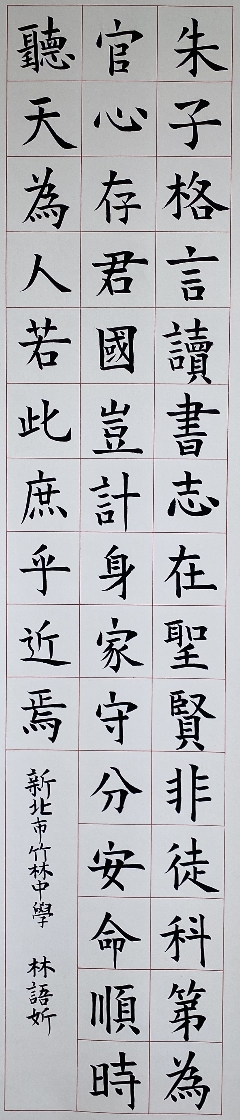 朱子格言讀書志在聖賢非徒科第為
官心存君國豈計身家守分安命順時
聽天為人若此庶乎近焉
新北市竹林中學 林語妡